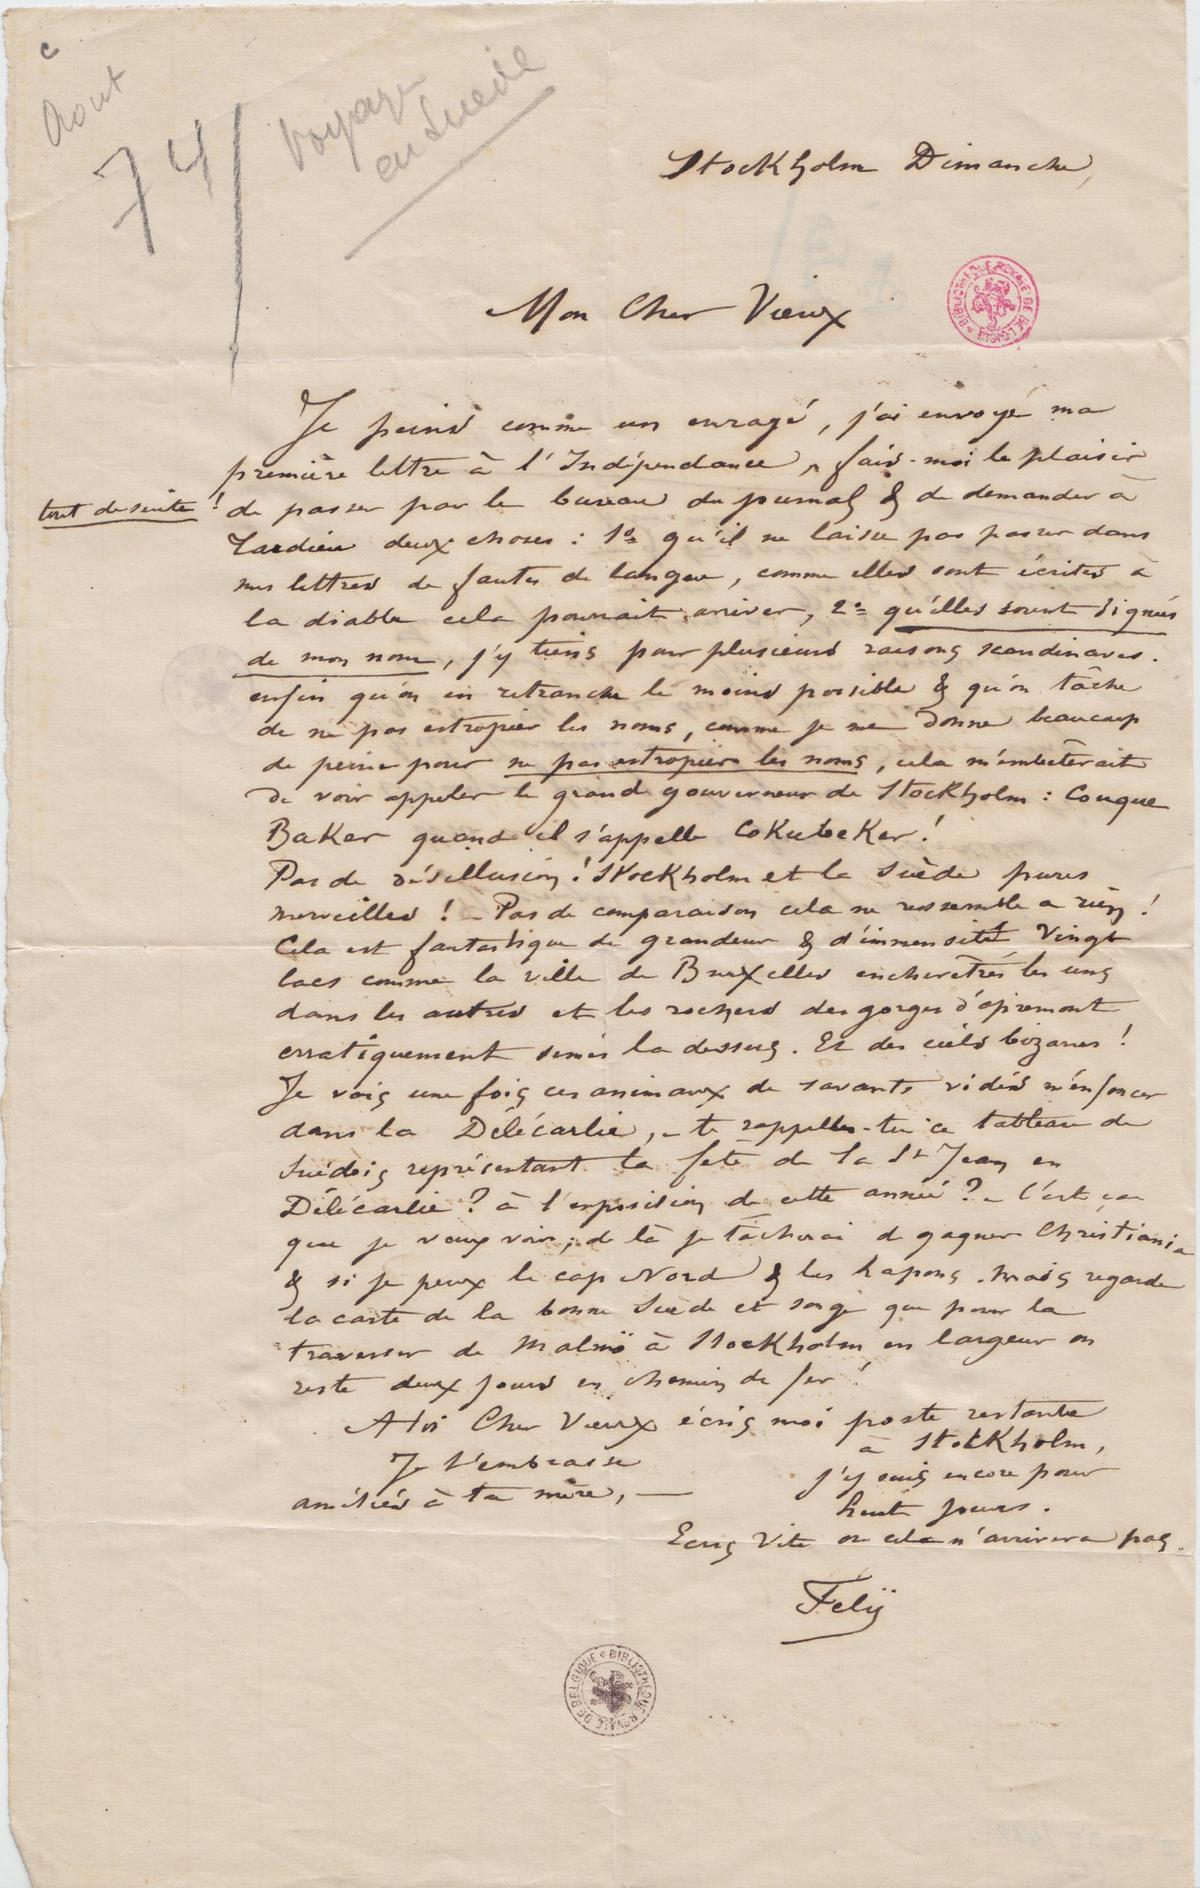 c
Aout
74
Voyage
en Suède
Stockholm Dimanche,
BIBLIOTHEQUE ROYALE DE BELGIQUE
Mon Cher Vieux
Je peins comme un enragé, j'ai envoyé ma
première lettre à l'Indépendance, fais-moi le plaisir
tout de suite!
de passer par le bureau du journal & de demander à
Tardieu deux choses : 1o qu'il ne laisse pas passer dans
mes lettres de fautes de langue, comme elles sont écrites à
la diable cela pourrait arriver, 2o qu'elles soient signées
de mon nom, j'y tiens pour plusieurs raisons scandinaves.
enfin qu'on en retranche le moins possible & qu'on tâche
de ne pas estropier les noms, comme je me donne beaucoup
de peine pour ne pas estropier les noms, cela m'embêterait
de voir appeler le grand gouverneur de Stockholm : Couque
Baker quand il s'appelle CoKubeKer!
Pas de désillusion! Stockholm et la Suède pures
merveilles! - Pas de comparaison cela ne ressemble a rien!
Cela est fantastique de grandeur & d'immensité Vingt
lacs comme la ville de Bruxelles enchevêtrés les uns
dans les autres et les rochers des gorges d'apremont
erratiquement semés la dessus. Et des ciels bizarres!
Je vais une fois ces animaux de savants vidés m'enfoncer
dans la Délécarlie, - te rappelles-tu ce tableau de
Suédois représentant la fête de la St Jean en
Délécarlie? à l'exposition de cette année? - C'est ça
que je veux voir; de là je tâcherai de gagner Christiania
& si je peux le cap Nord & les Lapons. Mais regarde
la carte de la bonne Suède et songe que pour la
traverser de Malmö à Stockholm en largeur on
reste deux jours en chemin de fer!
A toi Cher Vieux écris moi poste restante
à Stockholm,
Je t'embrasse
j'y suis encore pour
amitiés à ta mère, —
huit jours.
Ecris Vite ou cela n'arrivera pas.
Fély
BIBLIOTHEQUE ROYALE DE BELGIQUE